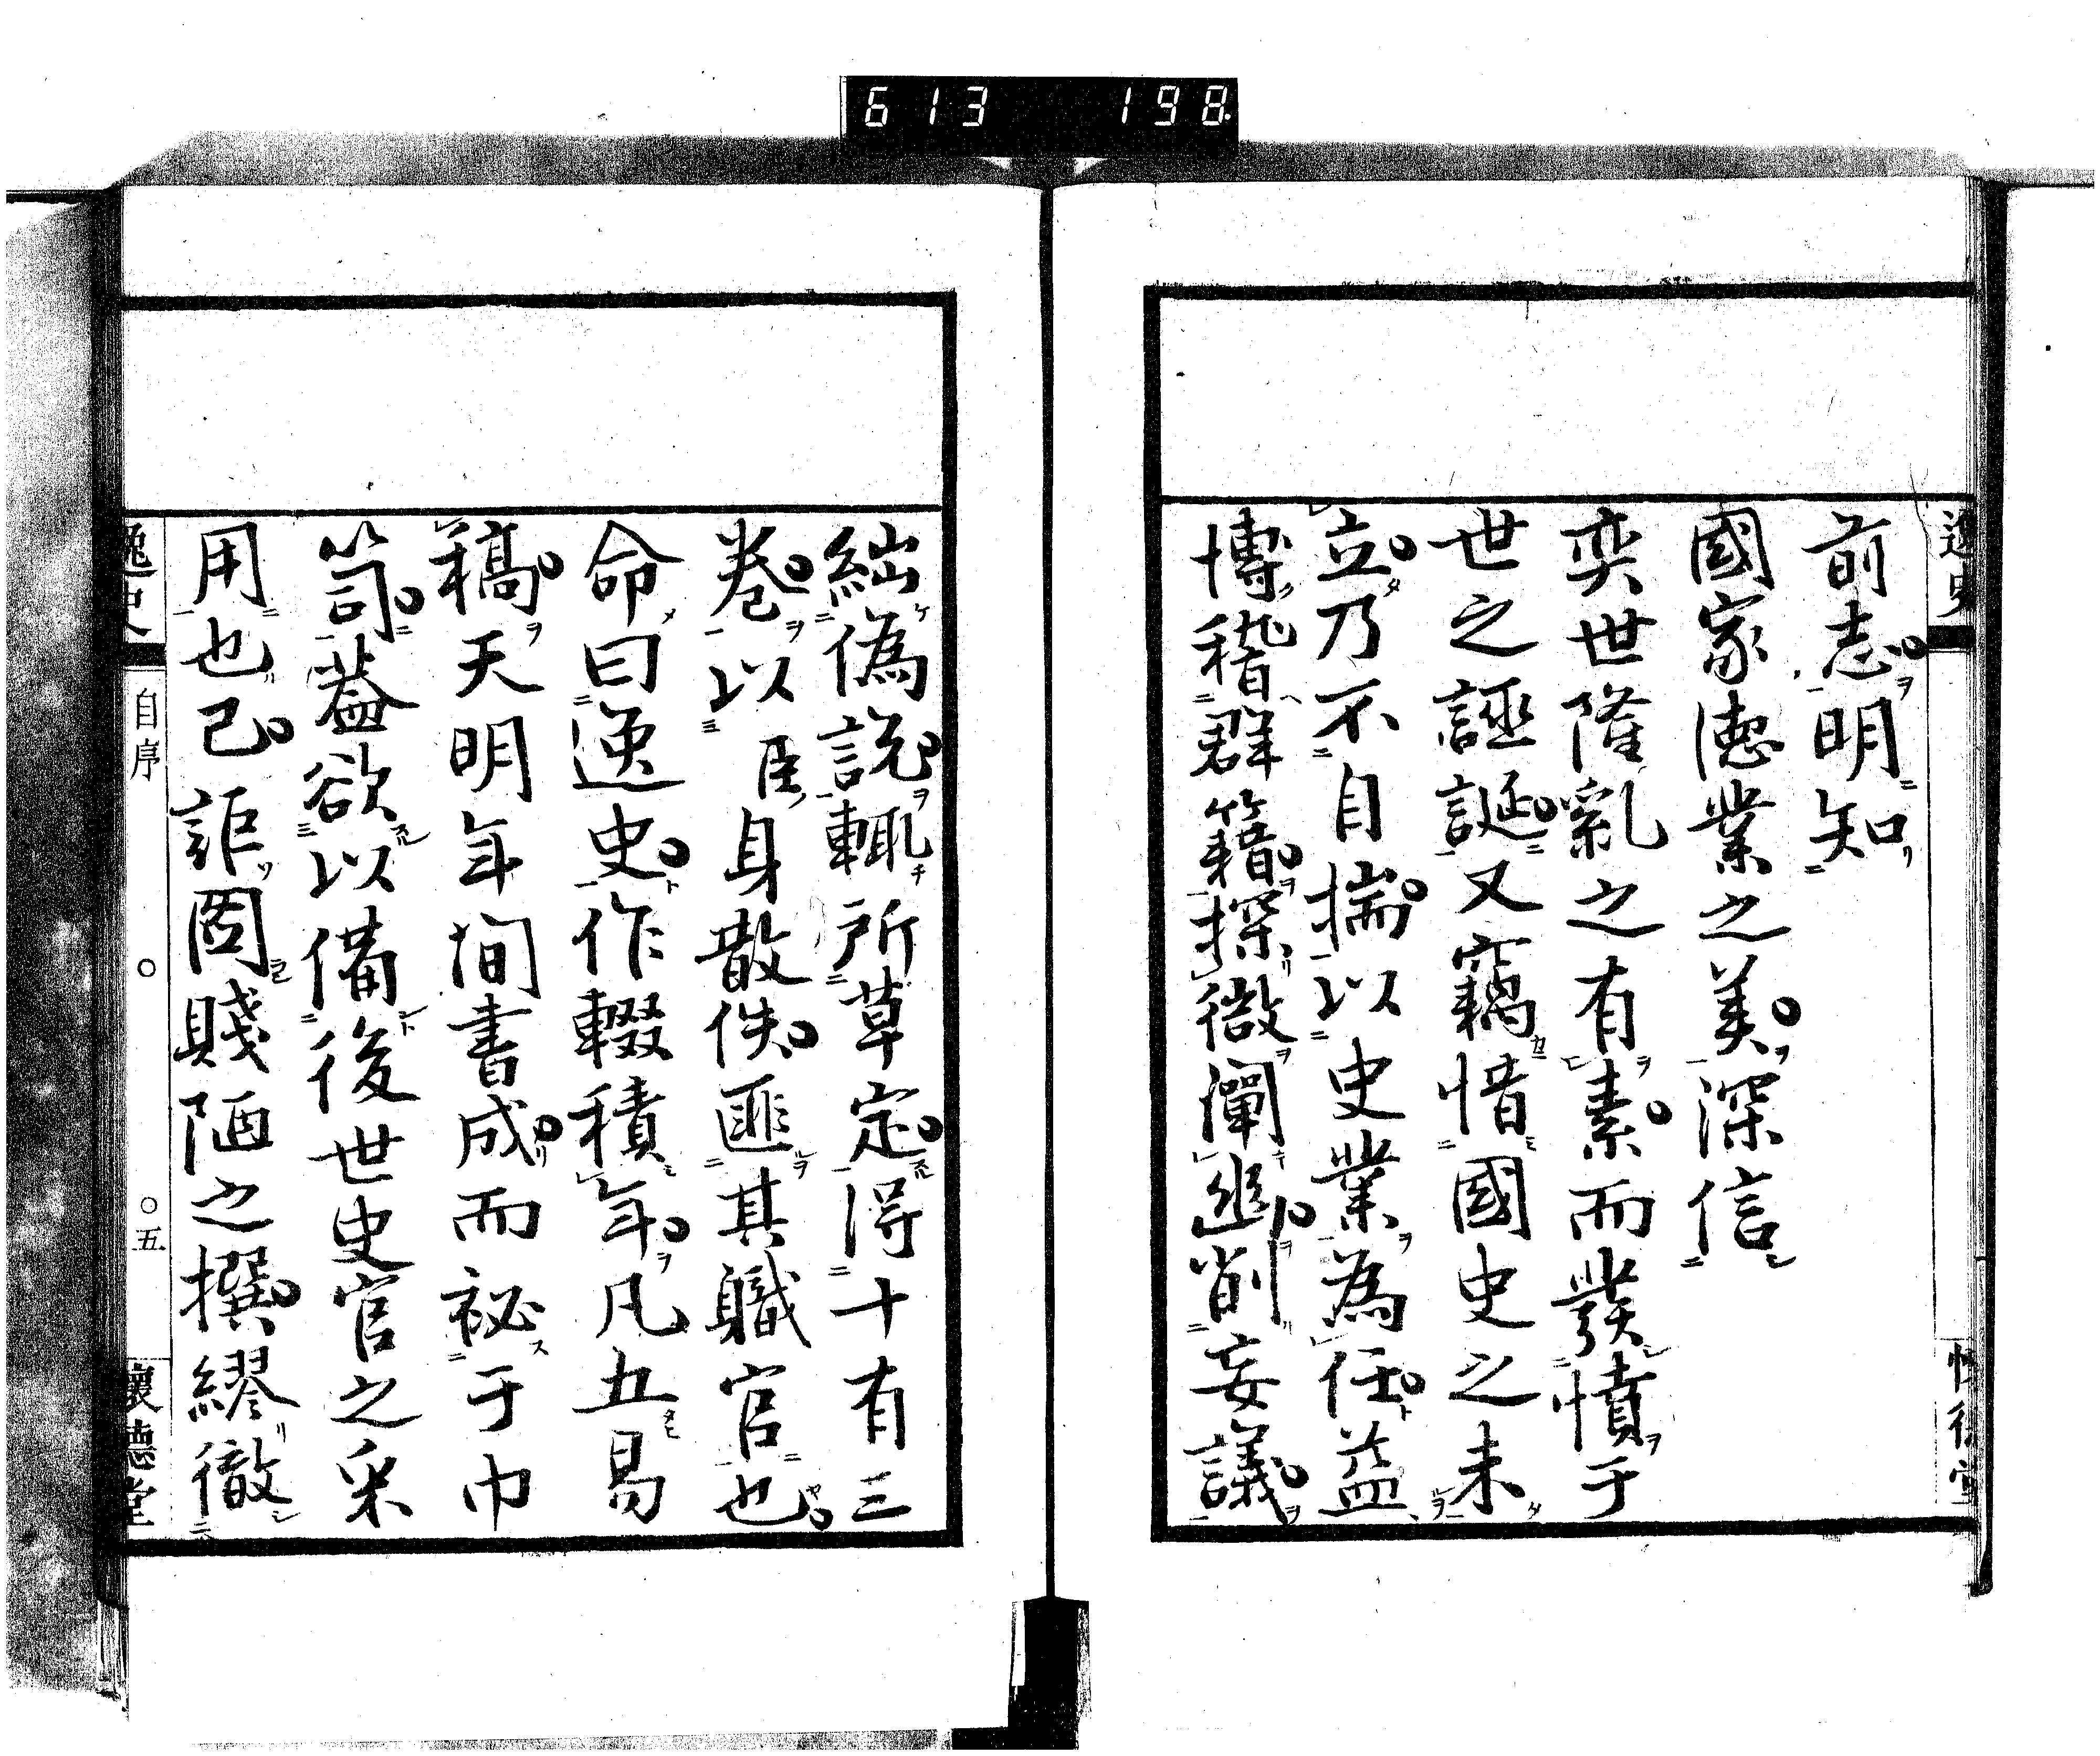 613 198
逸史
前志明知
國家德業之美深信
奕世隆亂之有素而發憤于
世之誣誕又竊惜國史之未
立乃不自揣以史業為任益
博稽群籍探微闡幽削妄議
絀偽説輒所草定得十有三
卷以臣身散佚匪其職官也
命曰逸史作輟積年凡五易
稿天明年間書成而祕于巾
笥蓋欲以備後世史官之采
用也已詎圖賤陋之撰繆徹
逸史
自序
○
○五
懷德堂